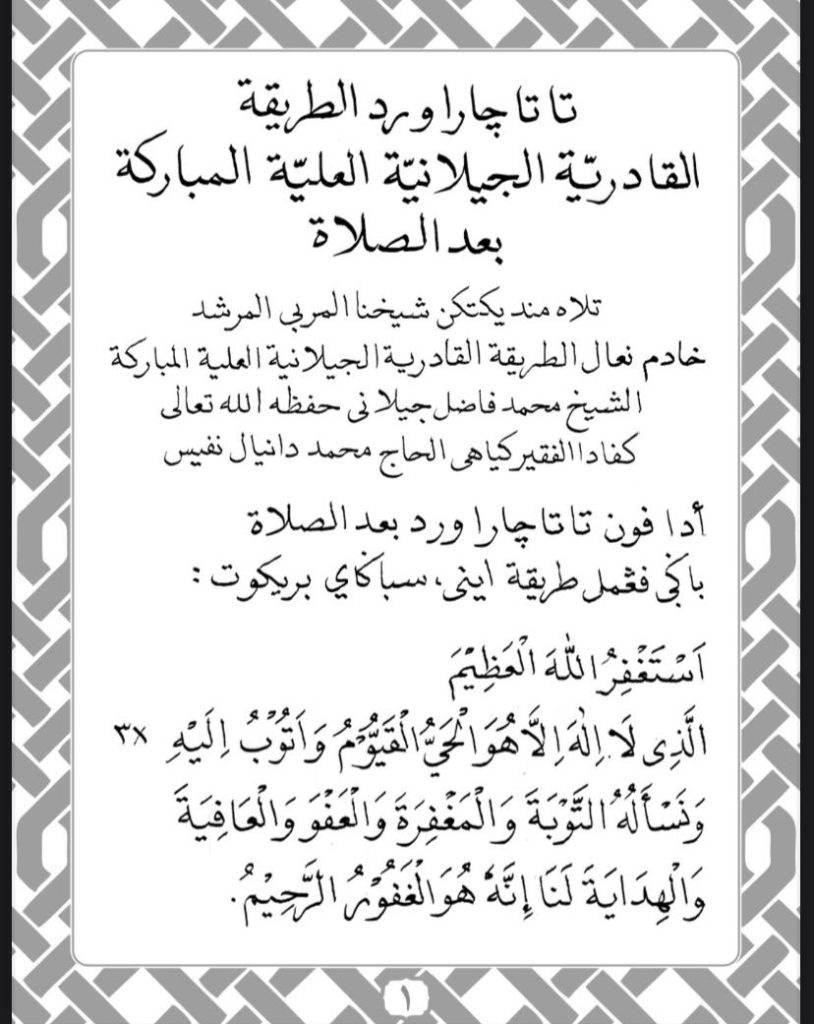 تاتاچارا ورد الطريقة
القادريّة الجيلانيّة العليّة المباركة
بعد الصلاة
تلاه منديكتكن شيخنا المربي المرشد
خادم نعال الطريقة القادرية الجيلانية العلية المباركة
الشيخ محمد فاضل جيلانى حفظه الله تعالى
كفادا الفقير كياهى الحاج محمد دانيال نفيس
أدا فون تاتاچارا ورد بعد الصلاة
باكي فڠمل طريقة اينى، سباݢاي بريكوت :
اَسْتَغْفِرُ اللّٰهَ الْعَظِيْمَ
الَّذِى لَا اِلٰهَ اِلَّا هُوَ الْحَيُّ الْقَيُّوْمُ وَاَتُوْبُ اِلَيْهِ ٣×
وَنَسْأَلُهُ التَّوْبَةَ وَالْمَغْفِرَةَ وَالْعَفْوَ وَالْعَافِيَةَ
وَالْهِدَايَةَ لَنَا إِنَّهُ هُوَ الْغَفُوْرُ الرَّحِيْمُ.
١